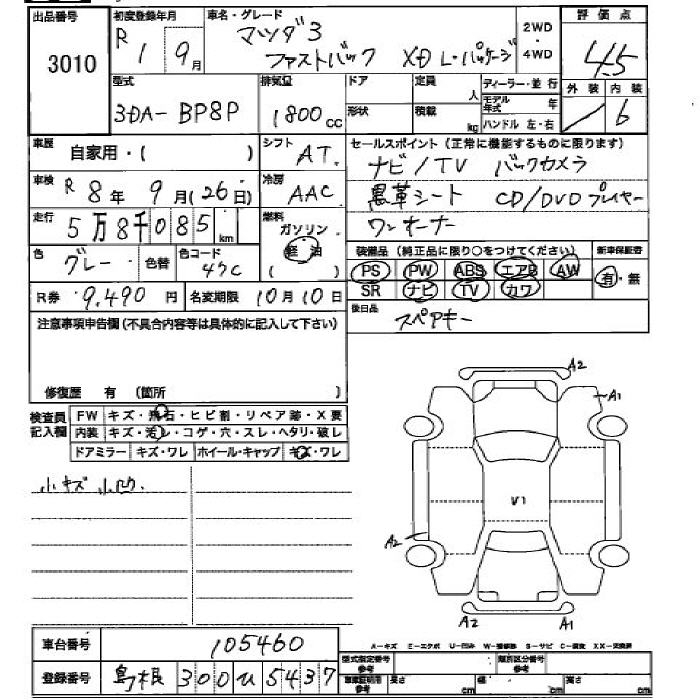 出品番号 3010
初度登録年月 R 1 9月
車名・グレード マツダ3 ファストバック XD L・パッケージ
2WD・4WD
評価点 4.5
外装 内装 6
型式 3DA-BP8P
排気量 1800cc
ドア 形状
定員 人
積載 kg
ディーラー・並行
モデル年式 年
ハンドル 左・右
車歴 自家用・( )
シフト AT
セールスポイント(正常に機能するものに限ります)
ナビ/TV バックカメラ
黒革シート CD/DVDプレイヤー
ワンオーナー
車検 R8年9月(26日)
冷房 AAC
走行 5万8千085km
燃料 ガソリン 軽油 ( )
色 グレー 色替 色コード 47C
装備品(純正品に限り○をつけてください) 新車保証書
PS PW ABS エアB AW 有・無
SR ナビ TV カワ
R券 9,490円 名変期限 10月10日
後日品 スペアキー
注意事項申告欄(不具合内容等は具体的に記入して下さい)
修復歴 有 (箇所 )
検査員記入欄
FW キズ・飛石・ヒビ割・リペア跡・X要
内装 キズ・汚レ・コゲ・穴・スレ・ヘタリ・破レ
ドアミラー キズ・ワレ ホイール・キャップ キズ・ワレ
小キズ 小凹
A2
A1
V1
A2
A2 A1
車台番号 105460
登録番号 島根 300 ひ 5437
A-キズ E-エクボ U-凹ミ W-補修跡 S-サビ C-腐食 XX-交換済
型式指定番号 参考
類別区分番号 参考
車庫証明用 参考 長さ cm 幅 cm 高さ cm